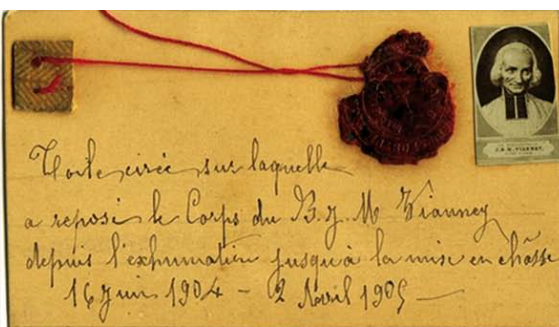 J.B.M. VIANNEY
Toile cirée sur laquelle
a reposé le Corps du B. J. M Vianney
depuis l'exhumation jusqu'à la mise en châsse
16 Juin 1904 - 2 Avril 1905 -